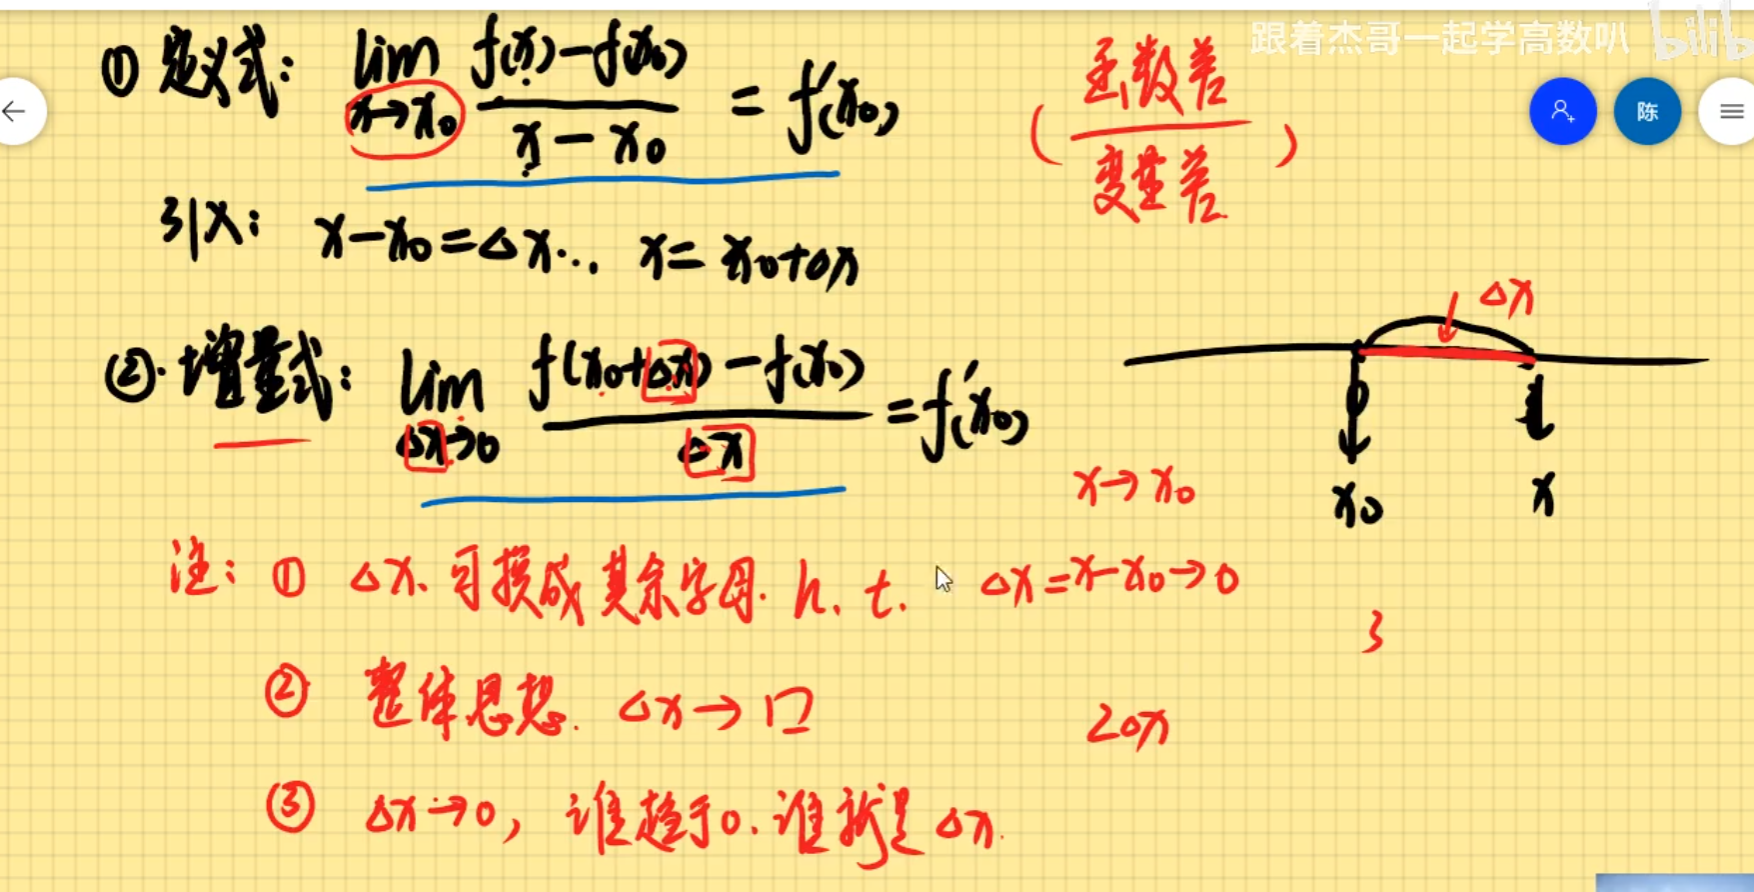 跟着杰哥一起学高数叭 bilib
① 定义式: lim x→x₀ (f(x)-f(x₀))/(x-x₀) = f'(x₀)
(函数差/变量差)
陈
引入: x-x₀=Δx... x=x₀+Δx
②. 增量式: lim Δx→0 (f(x₀+Δx)-f(x₀))/Δx = f'(x₀)
Δx
x₀ x
x→x₀
注: ① Δx、可换成其余字母. h. t.
Δx=x-x₀→0
3
② 整体思想. Δx→口
2Δx
③ Δx→0, 谁趋于0. 谁就是Δx.